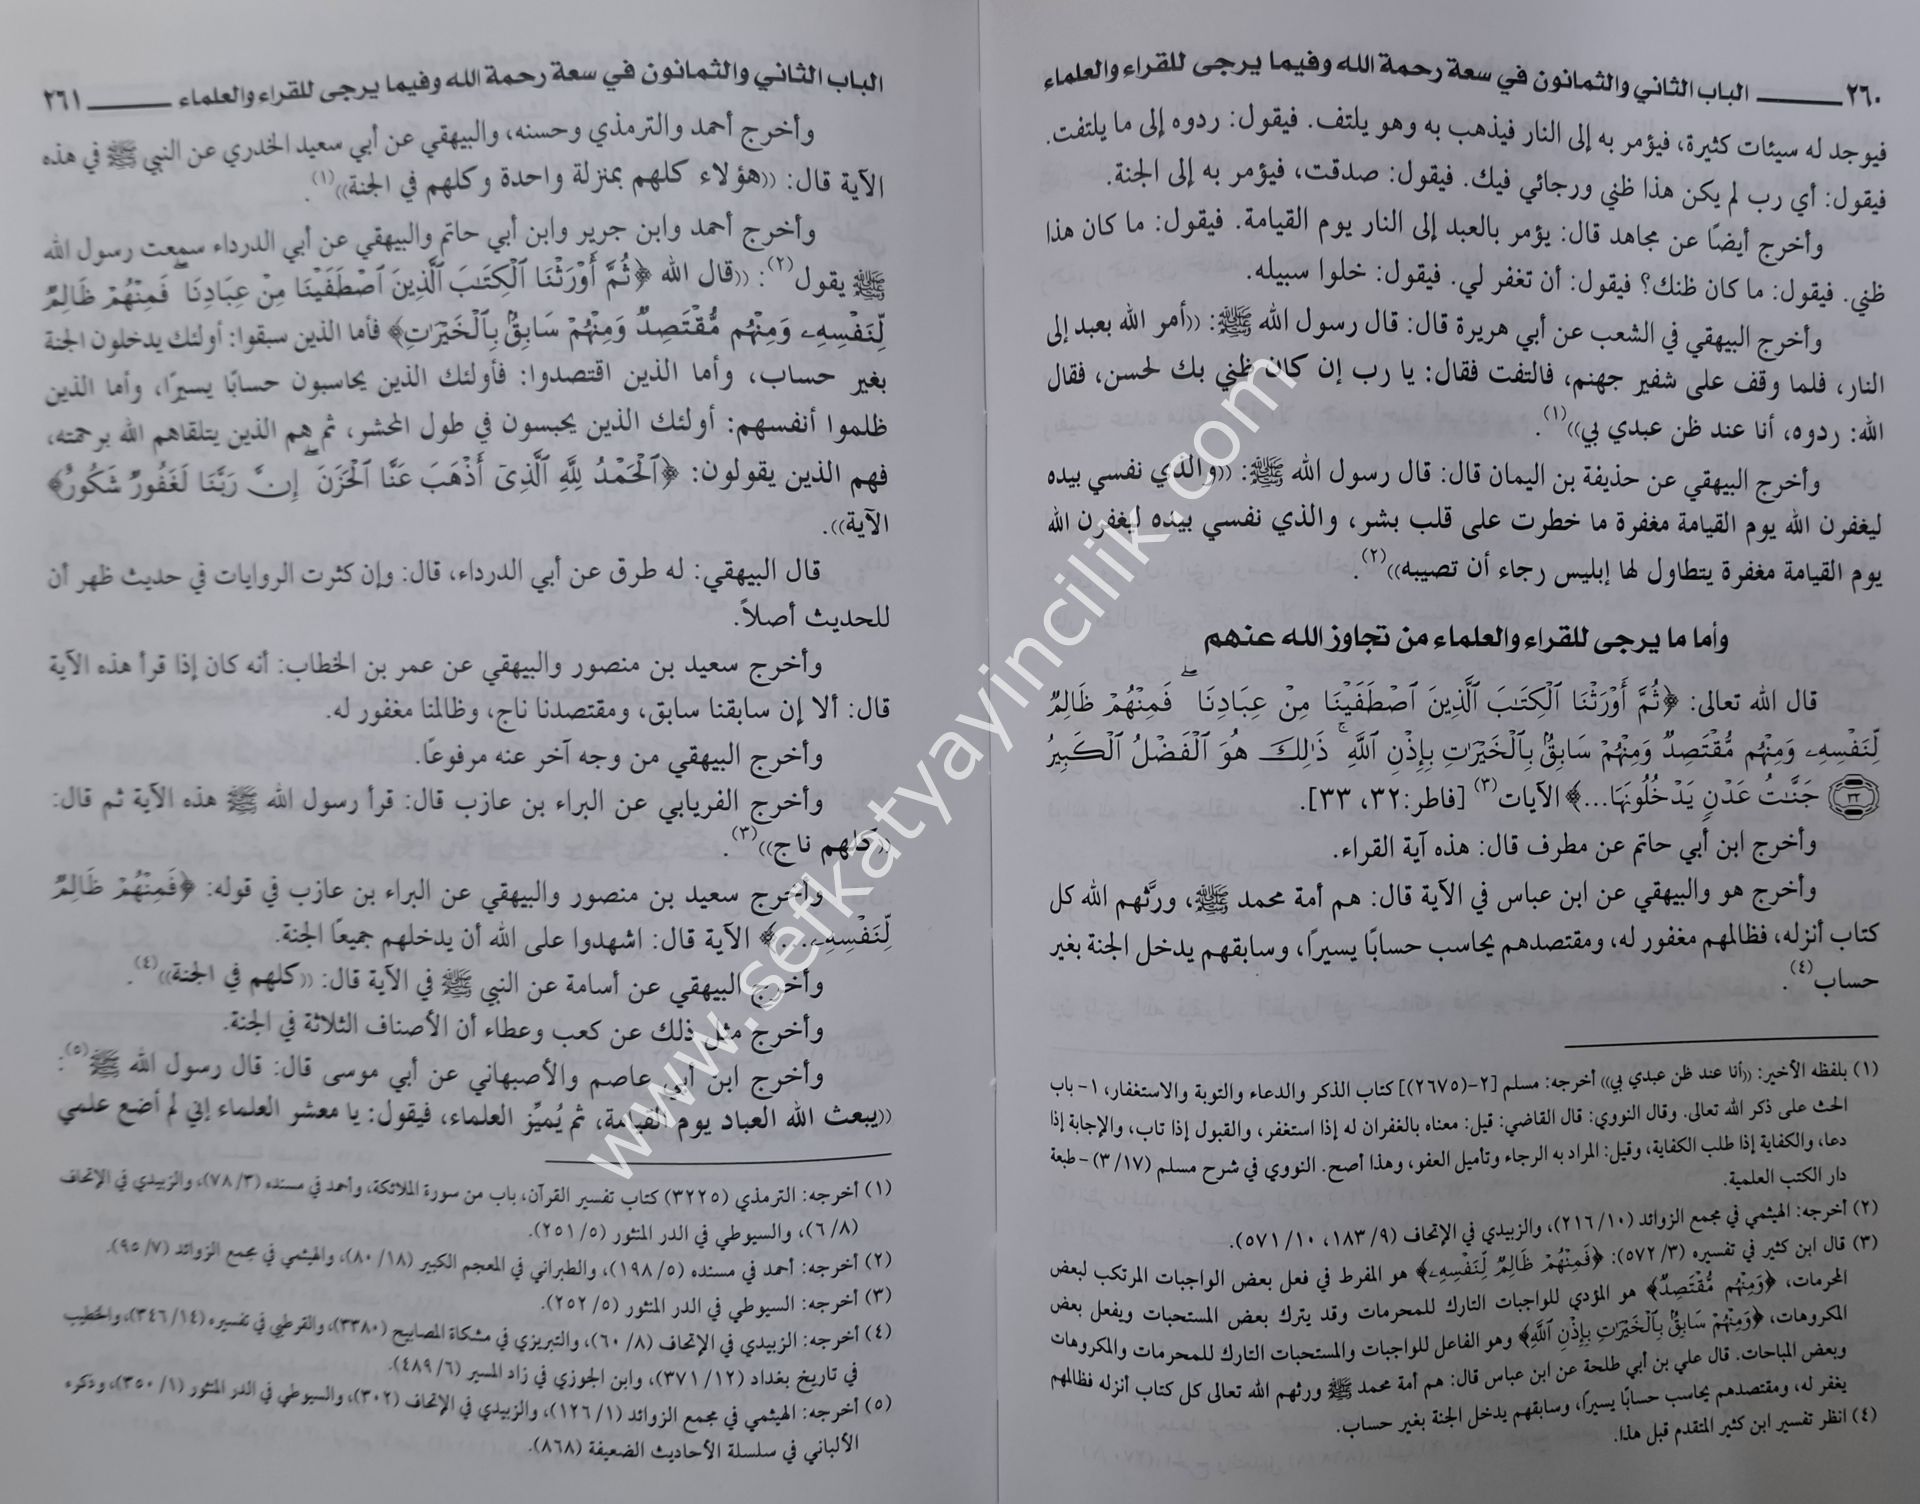 ٢٦٠ ـــــــ الباب الثاني والثمانون في سعة رحمة الله وفيما يرجى للقراء والعلماء
فيوجد له سيئات كثيرة، فيؤمر به إلى النار فيذهب به وهو يلتف. فيقول: ردوه إلى ما يلتفت.
فيقول: أي رب لم يكن هذا ظني ورجائي فيك. فيقول: صدقت، فيؤمر به إلى الجنة.
وأخرج أيضًا عن مجاهد قال: يؤمر بالعبد إلى النار يوم القيامة. فيقول: ما كان هذا
ظني. فيقول: ما كان ظنك؟ فيقول: أن تغفر لي. فيقول: خلوا سبيله.
وأخرج البيهقي في الشعب عن أبي هريرة قال: قال رسول الله ﷺ: ((أمر الله بعبد إلى
النار، فلما وقف على شفير جهنم، فالتفت فقال: يا رب إن كان ظني بك لحسن، فقال
الله: ردوه، أنا عند ظن عبدي بي))(١).
وأخرج البيهقي عن حذيفة بن اليمان قال: قال رسول الله ﷺ: ((والذي نفسي بيده
ليغفرن الله يوم القيامة مغفرة ما خطرت على قلب بشر، والذي نفسي بيده ليغفرن الله
يوم القيامة مغفرة يتطاول لها إبليس رجاء أن تصيبه))(٢).
وأما ما يرجى للقراء والعلماء من تجاوز الله عنهم
قال الله تعالى: ﴿ثُمَّ أَوْرَثْنَا ٱلْكِتَٰبَ ٱلَّذِينَ ٱصْطَفَيْنَا مِنْ عِبَادِنَا ۖ فَمِنْهُمْ ظَالِمٌ
لِّنَفْسِهِۦ وَمِنْهُم مُّقْتَصِدٌ وَمِنْهُمْ سَابِقٌۢ بِٱلْخَيْرَٰتِ بِإِذْنِ ٱللَّهِ ۚ ذَٰلِكَ هُوَ ٱلْفَضْلُ ٱلْكَبِيرُ
٣٢ جَنَّٰتُ عَدْنٍ يَدْخُلُونَهَا...﴾ الآيات(٣) [فاطر:٣٢، ٣٣].
وأخرج ابن أبي حاتم عن مطرف قال: هذه آية القراء.
وأخرج هو والبيهقي عن ابن عباس في الآية قال: هم أمة محمد ﷺ، ورَّثهم الله كل
كتاب أنزله، فظالمهم مغفور له، ومقتصدهم يحاسب حسابًا يسيرًا، وسابقهم يدخل الجنة بغير
حساب(٤).
(١) بلفظه الأخير: ((أنا عند ظن عبدي بي)) أخرجه: مسلم [٢-(٢٦٧٥)] كتاب الذكر والدعاء والتوبة والاستغفار، ١- باب
الحث على ذكر الله تعالى. وقال النووي: قال القاضي: قيل: معناه بالغفران له إذا استغفر، والقبول إذا تاب، والإجابة إذا
دعا، والكفاية إذا طلب الكفاية، وقيل: المراد به الرجاء وتأميل العفو، وهذا أصح. النووي في شرح مسلم (١٧/ ٣)- طبعة
دار الكتب العلمية.
(٢) أخرجه: الهيثمي في مجمع الزوائد (١٠/ ٢١٦)، والزبيدي في الإتحاف (٩/ ١٨٣، ١٠/ ٥٧١).
(٣) قال ابن كثير في تفسيره (٣/ ٥٧٢): ﴿فَمِنْهُمْ ظَالِمٌ لِّنَفْسِهِۦ﴾ هو المفرط في فعل بعض الواجبات المرتكب لبعض
المحرمات، ﴿وَمِنْهُم مُّقْتَصِدٌ﴾ هو المؤدي للواجبات التارك للمحرمات وقد يترك بعض المستحبات ويفعل بعض
المكروهات، ﴿وَمِنْهُمْ سَابِقٌۢ بِٱلْخَيْرَٰتِ بِإِذْنِ ٱللَّهِ﴾ وهو الفاعل للواجبات والمستحبات التارك للمحرمات والمكروهات
وبعض المباحات. قال علي بن أبي طلحة عن ابن عباس قال: هم أمة محمد ﷺ ورثهم الله تعالى كل كتاب أنزله فظالمهم
يغفر له، ومقتصدهم يحاسب حسابًا يسيرًا، وسابقهم يدخل الجنة بغير حساب.
(٤) انظر تفسير ابن كثير المتقدم قبل هذا.
الباب الثاني والثمانون في سعة رحمة الله وفيما يرجى للقراء والعلماء ـــــــ ٢٦١
وأخرج أحمد والترمذي وحسنه، والبيهقي عن أبي سعيد الخدري عن النبي ﷺ في هذه
الآية قال: ((هؤلاء كلهم بمنزلة واحدة وكلهم في الجنة))(١).
وأخرج أحمد وابن جرير وابن أبي حاتم والبيهقي عن أبي الدرداء سمعت رسول الله
ﷺ يقول(٢): ((قال الله ﴿ثُمَّ أَوْرَثْنَا ٱلْكِتَٰبَ ٱلَّذِينَ ٱصْطَفَيْنَا مِنْ عِبَادِنَا ۖ فَمِنْهُمْ ظَالِمٌ
لِّنَفْسِهِۦ وَمِنْهُم مُّقْتَصِدٌ وَمِنْهُمْ سَابِقٌۢ بِٱلْخَيْرَٰتِ﴾ فأما الذين سبقوا: أولئك يدخلون الجنة
بغير حساب، وأما الذين اقتصدوا: فأولئك الذين يحاسبون حسابًا يسيرًا، وأما الذين
ظلموا أنفسهم: أولئك الذين يحبسون في طول المحشر، ثم هم الذين يتلقاهم الله برحمته،
فهم الذين يقولون: ﴿ٱلْحَمْدُ لِلَّهِ ٱلَّذِىٓ أَذْهَبَ عَنَّا ٱلْحَزَنَ ۖ إِنَّ رَبَّنَا لَغَفُورٌ شَكُورٌ﴾
الآية)).
قال البيهقي: له طرق عن أبي الدرداء، قال: وإن كثرت الروايات في حديث ظهر أن
للحديث أصلاً.
وأخرج سعيد بن منصور والبيهقي عن عمر بن الخطاب: أنه كان إذا قرأ هذه الآية
قال: ألا إن سابقنا سابق، ومقتصدنا ناج، وظالمنا مغفور له.
وأخرج البيهقي من وجه آخر عنه مرفوعًا.
وأخرج الفريابي عن البراء بن عازب قال: قرأ رسول الله ﷺ هذه الآية ثم قال:
((كلهم ناج))(٣).
وأخرج سعيد بن منصور والبيهقي عن البراء بن عازب في قوله: ﴿فَمِنْهُمْ ظَالِمٌ
لِّنَفْسِهِۦ...﴾ الآية قال: اشهدوا على الله أن يدخلهم جميعًا الجنة.
وأخرج البيهقي عن أسامة عن النبي ﷺ في الآية قال: ((كلهم في الجنة))(٤).
وأخرج مثل ذلك عن كعب وعطاء أن الأصناف الثلاثة في الجنة.
وأخرج ابن أبي عاصم والأصبهاني عن أبي موسى قال: قال رسول الله ﷺ(٥):
((يبعث الله العباد يوم القيامة، ثم يُميِّز العلماء، فيقول: يا معشر العلماء إني لم أضع علمي
(١) أخرجه: الترمذي (٣٢٢٥) كتاب تفسير القرآن، باب من سورة الملائكة، وأحمد في مسنده (٣/ ٧٨)، والزبيدي في الإتحاف
(٨/ ٦)، والسيوطي في الدر المنثور (٥/ ٢٥١).
(٢) أخرجه: أحمد في مسنده (٥/ ١٩٨)، والطبراني في المعجم الكبير (١٨/ ٨٠)، والهيثمي في مجمع الزوائد (٧/ ٩٥).
(٣) أخرجه: السيوطي في الدر المنثور (٥/ ٢٥٢).
(٤) أخرجه: الزبيدي في الإتحاف (٨/ ٦٠)، والتبريزي في مشكاة المصابيح (٣٣٨٠)، والقرطبي في تفسيره (١٤/ ٣٤٦)، والخطيب
في تاريخ بغداد (١٢/ ٣٧١)، وابن الجوزي في زاد المسير (٦/ ٤٨٩).
(٥) أخرجه: الهيثمي في مجمع الزوائد (١/ ١٢٦)، والزبيدي في الإتحاف (٣٠٢)، والسيوطي في الدر المنثور (١/ ٣٥٠)، وذكره
الألباني في سلسلة الأحاديث الضعيفة (٨٦٨).
www.sefkatyayincilik.com